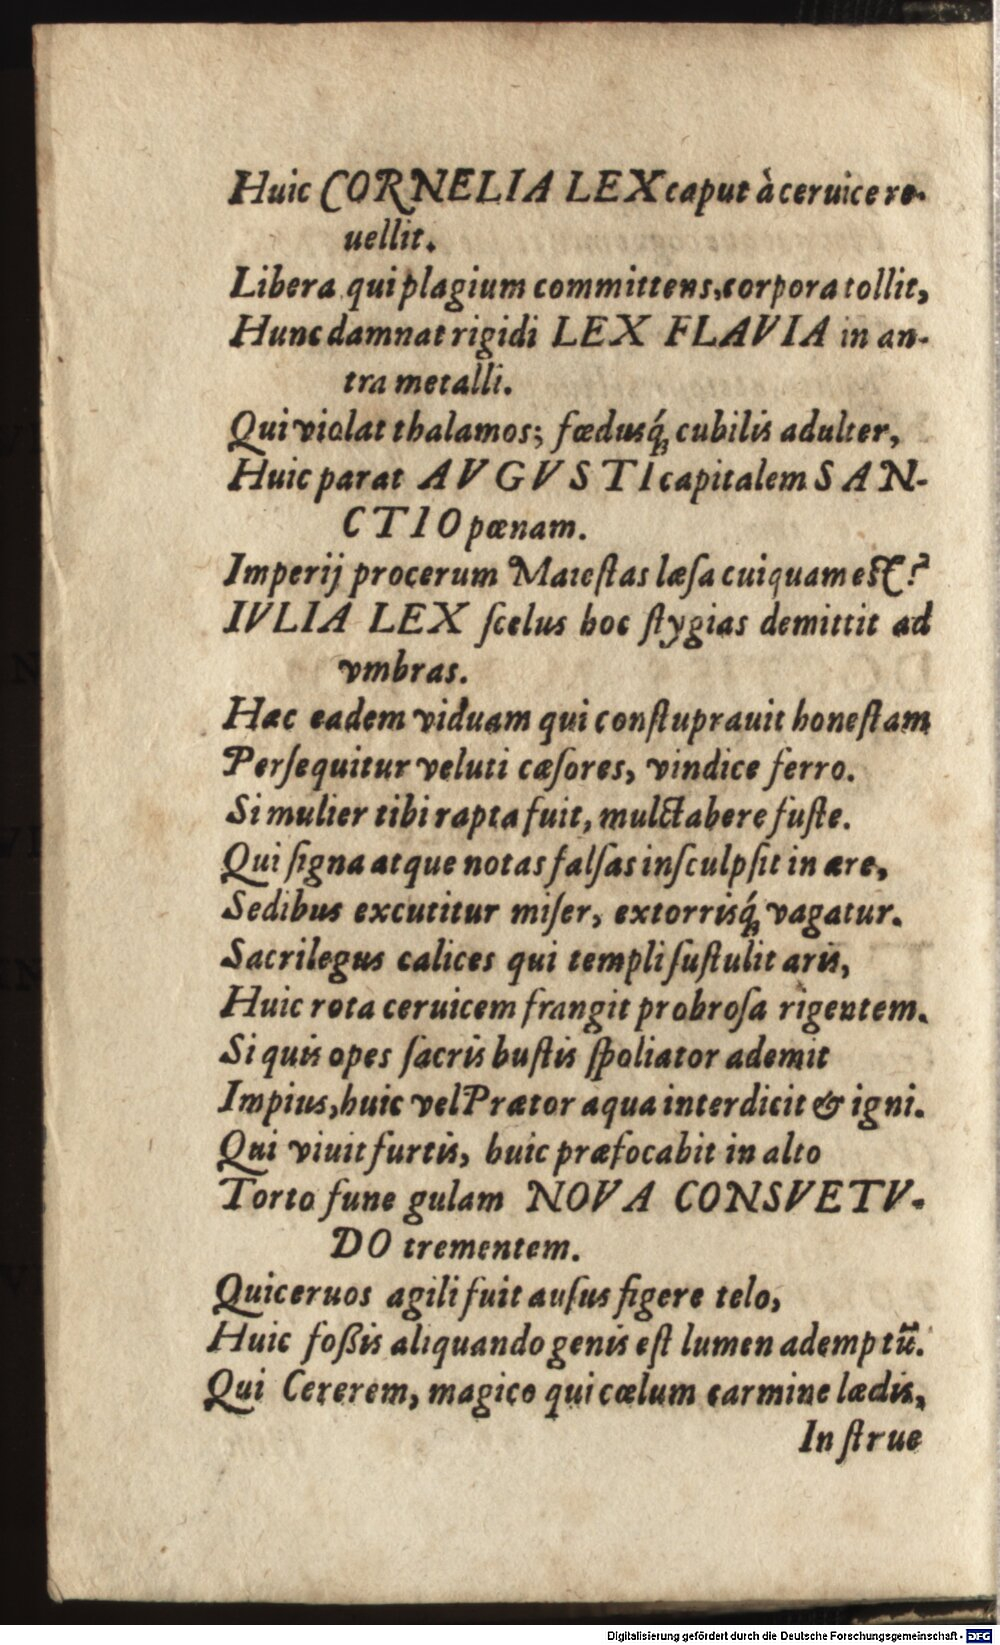 Huic CORNELIA LEX caput à ceruice re-
uellit.
Libera qui plagium committens, corpora tollit,
Hunc damnat rigidi LEX FLAVIA in an-
tra metalli.
Qui violat thalamos; fœdusq́ꝫ cubilis adulter,
Huic parat AVGVSTI capitalem SAN-
CTIO pœnam.
Imperij procerum Maiestas læſa cuiquam est?
IVLIA LEX ſcelus hoc ſtygias demittit ad
vmbras.
Hæc eadem viduam qui conſtuprauit honeſtam
Perſequitur veluti cæſores, vindice ferro.
Si mulier tibi rapta fuit, mulctabere fuſte.
Qui ſigna atque notas falſas inſculpſit in ære,
Sedibus excutitur miſer, extorrisq́ꝫ vagatur.
Sacrilegus calices qui templi ſuſtulit aris,
Huic rota ceruicem frangit probroſa rigentem.
Si quis opes ſacris buſtis ſpoliator ademit
Impius, huic vel Prætor aqua interdicit & igni.
Qui viuit furtis, huic præfocabit in alto
Torto fune gulam NOVA CONSVETV-
DO trementem.
Qui ceruos agili fuit auſus figere telo,
Huic foßis aliquando genis eſt lumen ademptū.
Qui Cererem, magico qui cœlum carmine lædis,
Inſtrue
Digitalisierung gefördert durch die Deutsche Forschungsgemeinschaft - DFG